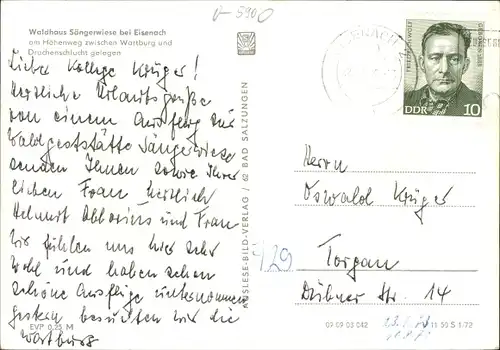 ρ-5900
Waldhaus Sängerwiese bei Eisenach
am Höhenweg zwischen Wartburg und
Drachenschlucht gelegen
Liebe Kollege Krüger!
Herzliche Urlaubsgrüße
von einem Ausflug zur
Waldgaststätte Sängerwiese
senden Ihnen sowie Ihrer
lieben Frau herzlich
Helmut und Frau
Wir fühlen uns hier sehr
wohl und haben schon
schöne Ausflüge unternommen
gestern besuchten wir die
Wartburg
EVP 0,25 M
AUSLESE-BILD-VERLAG / 62 BAD SALZUNGEN
EISENACH
FRIEDRICH WOLF
DDR 10
Herrn
Oswald Krüger
729
Torgau
Dübner Str. 14
09 09 03 042
11 50 S 1/72